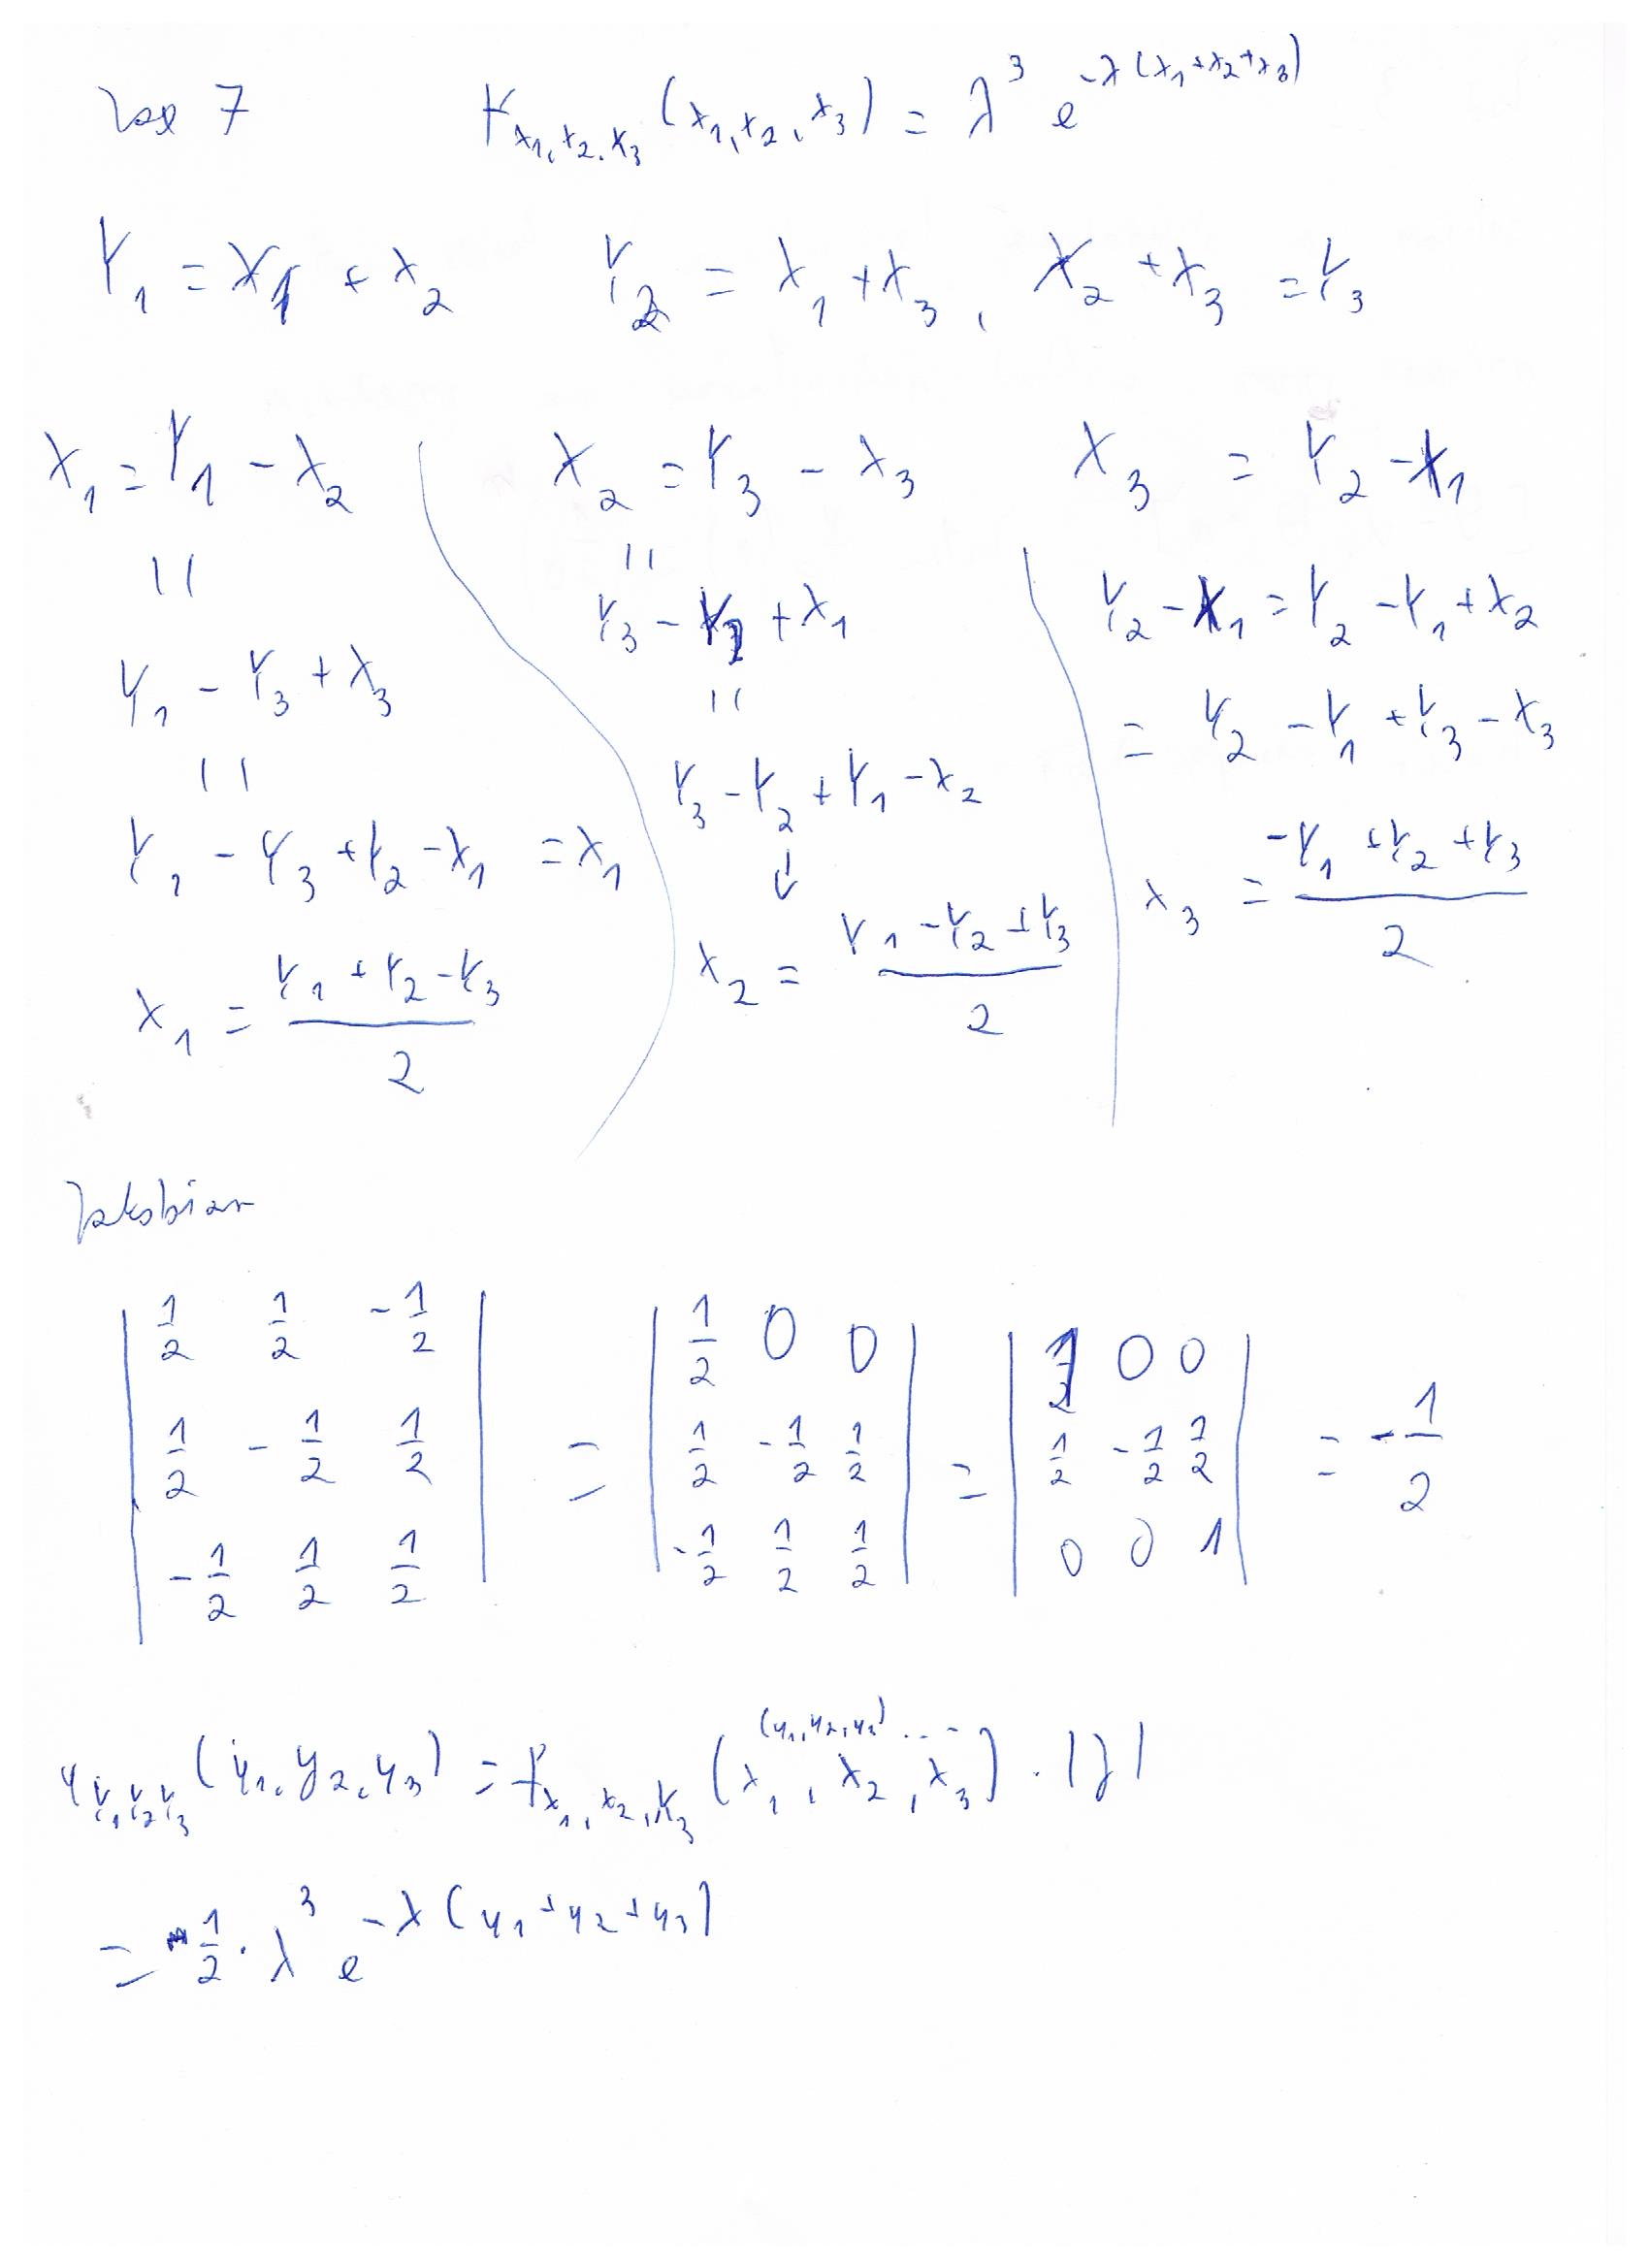 7 f_{X_1, X_2, X_3} (x_1, x_2, x_3) = λ^3 e^{-λ(x_1+x_2+x_3)}
Y_1 = X_1 + X_2 Y_2 = X_1 + X_3 , X_2 + X_3 = Y_3
X_1 = Y_1 - X_2
||
Y_1 - Y_3 + X_3
||
Y_1 - Y_3 + Y_2 - X_1 = X_1
X_1 = \frac{Y_1 + Y_2 - Y_3}{2}
X_2 = Y_3 - X_3
||
Y_3 - Y_2 + X_1
||
Y_3 - Y_2 + Y_1 - X_2
↓
X_2 = \frac{Y_1 - Y_2 + Y_3}{2}
X_3 = Y_2 - X_1
Y_2 - X_1 = Y_2 - Y_1 + X_2
= Y_2 - Y_1 + Y_3 - X_3
X_3 = \frac{-Y_1 + Y_2 + Y_3}{2}
Jakobian
| 1/2 1/2 -1/2 | = | 1/2 0 0 | = | 1/2 0 0 | = -1/2
| 1/2 -1/2 1/2 | | 1/2 -1/2 1/2 | | 1/2 -1/2 1/2 |
| -1/2 1/2 1/2 | | -1/2 1/2 1/2 | | 0 0 1 |
(y_1, y_2, y_3) ...
_{Y_1 Y_2 Y_3} (y_1, y_2, y_3) = f_{X_1, X_2, X_3} (x_1, x_2, x_3) · |J|
= \frac{1}{2} · λ^3 e^{-λ(y_1+y_2+y_3)}